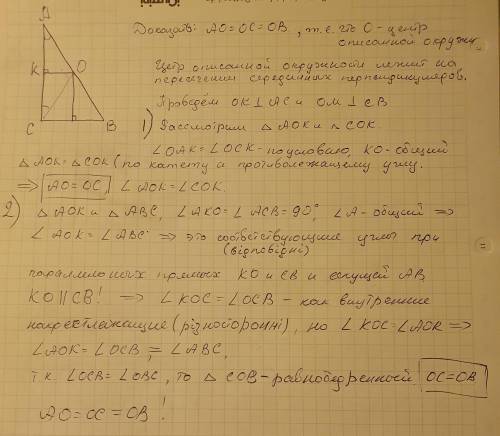 A
K
O
C
B
Доказать: AO=OC=OB, т.е. что O-центр
описанной окружн.
Центр описанной окружности лежит на
пересечении серединных перпендикуляров.
Проведём OK⊥AC и OM⊥CB
1) Рассмотрим △AOK и △COK.
∠OAK=∠OCK-по условию, KO-общий
△AOK=△COK (по катету и противолежащему углу.
⇒ AO=OC, ∠AOK=∠COK.
2) △AOK и △ABC, ∠AKO=∠ACB=90°, ∠A-общий ⇒
∠AOK=∠ABC ⇒ это соответствующие углы при
(відповідні)
параллельных прямых KO и CB и секущей AB
KO||CB! ⇒ ∠KOC=∠OCB - как внутренние
накрестлежащие (різносторонні), но ∠KOC=∠AOK ⇒
∠AOK=∠OCB=∠ABC,
т.к. ∠OCB=∠OBC, то △COB-равнобедренный OC=OB
AO=OC=OB!